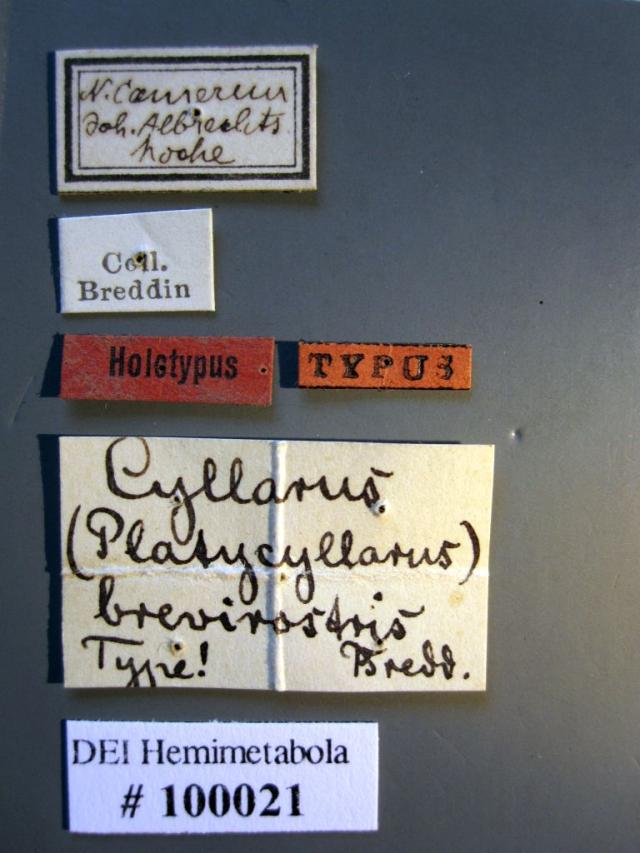 N. Camerun
Joh. Albrechts
höhe
Coll.
Breddin
Holotypus
TYPUS
Cyllarus
(Platycyllarus)
brevirostris
Type! Bredd.
DEI Hemimetabola
# 100021